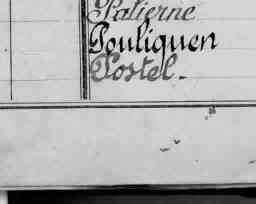 Patierne
Pouliquen
Postel.